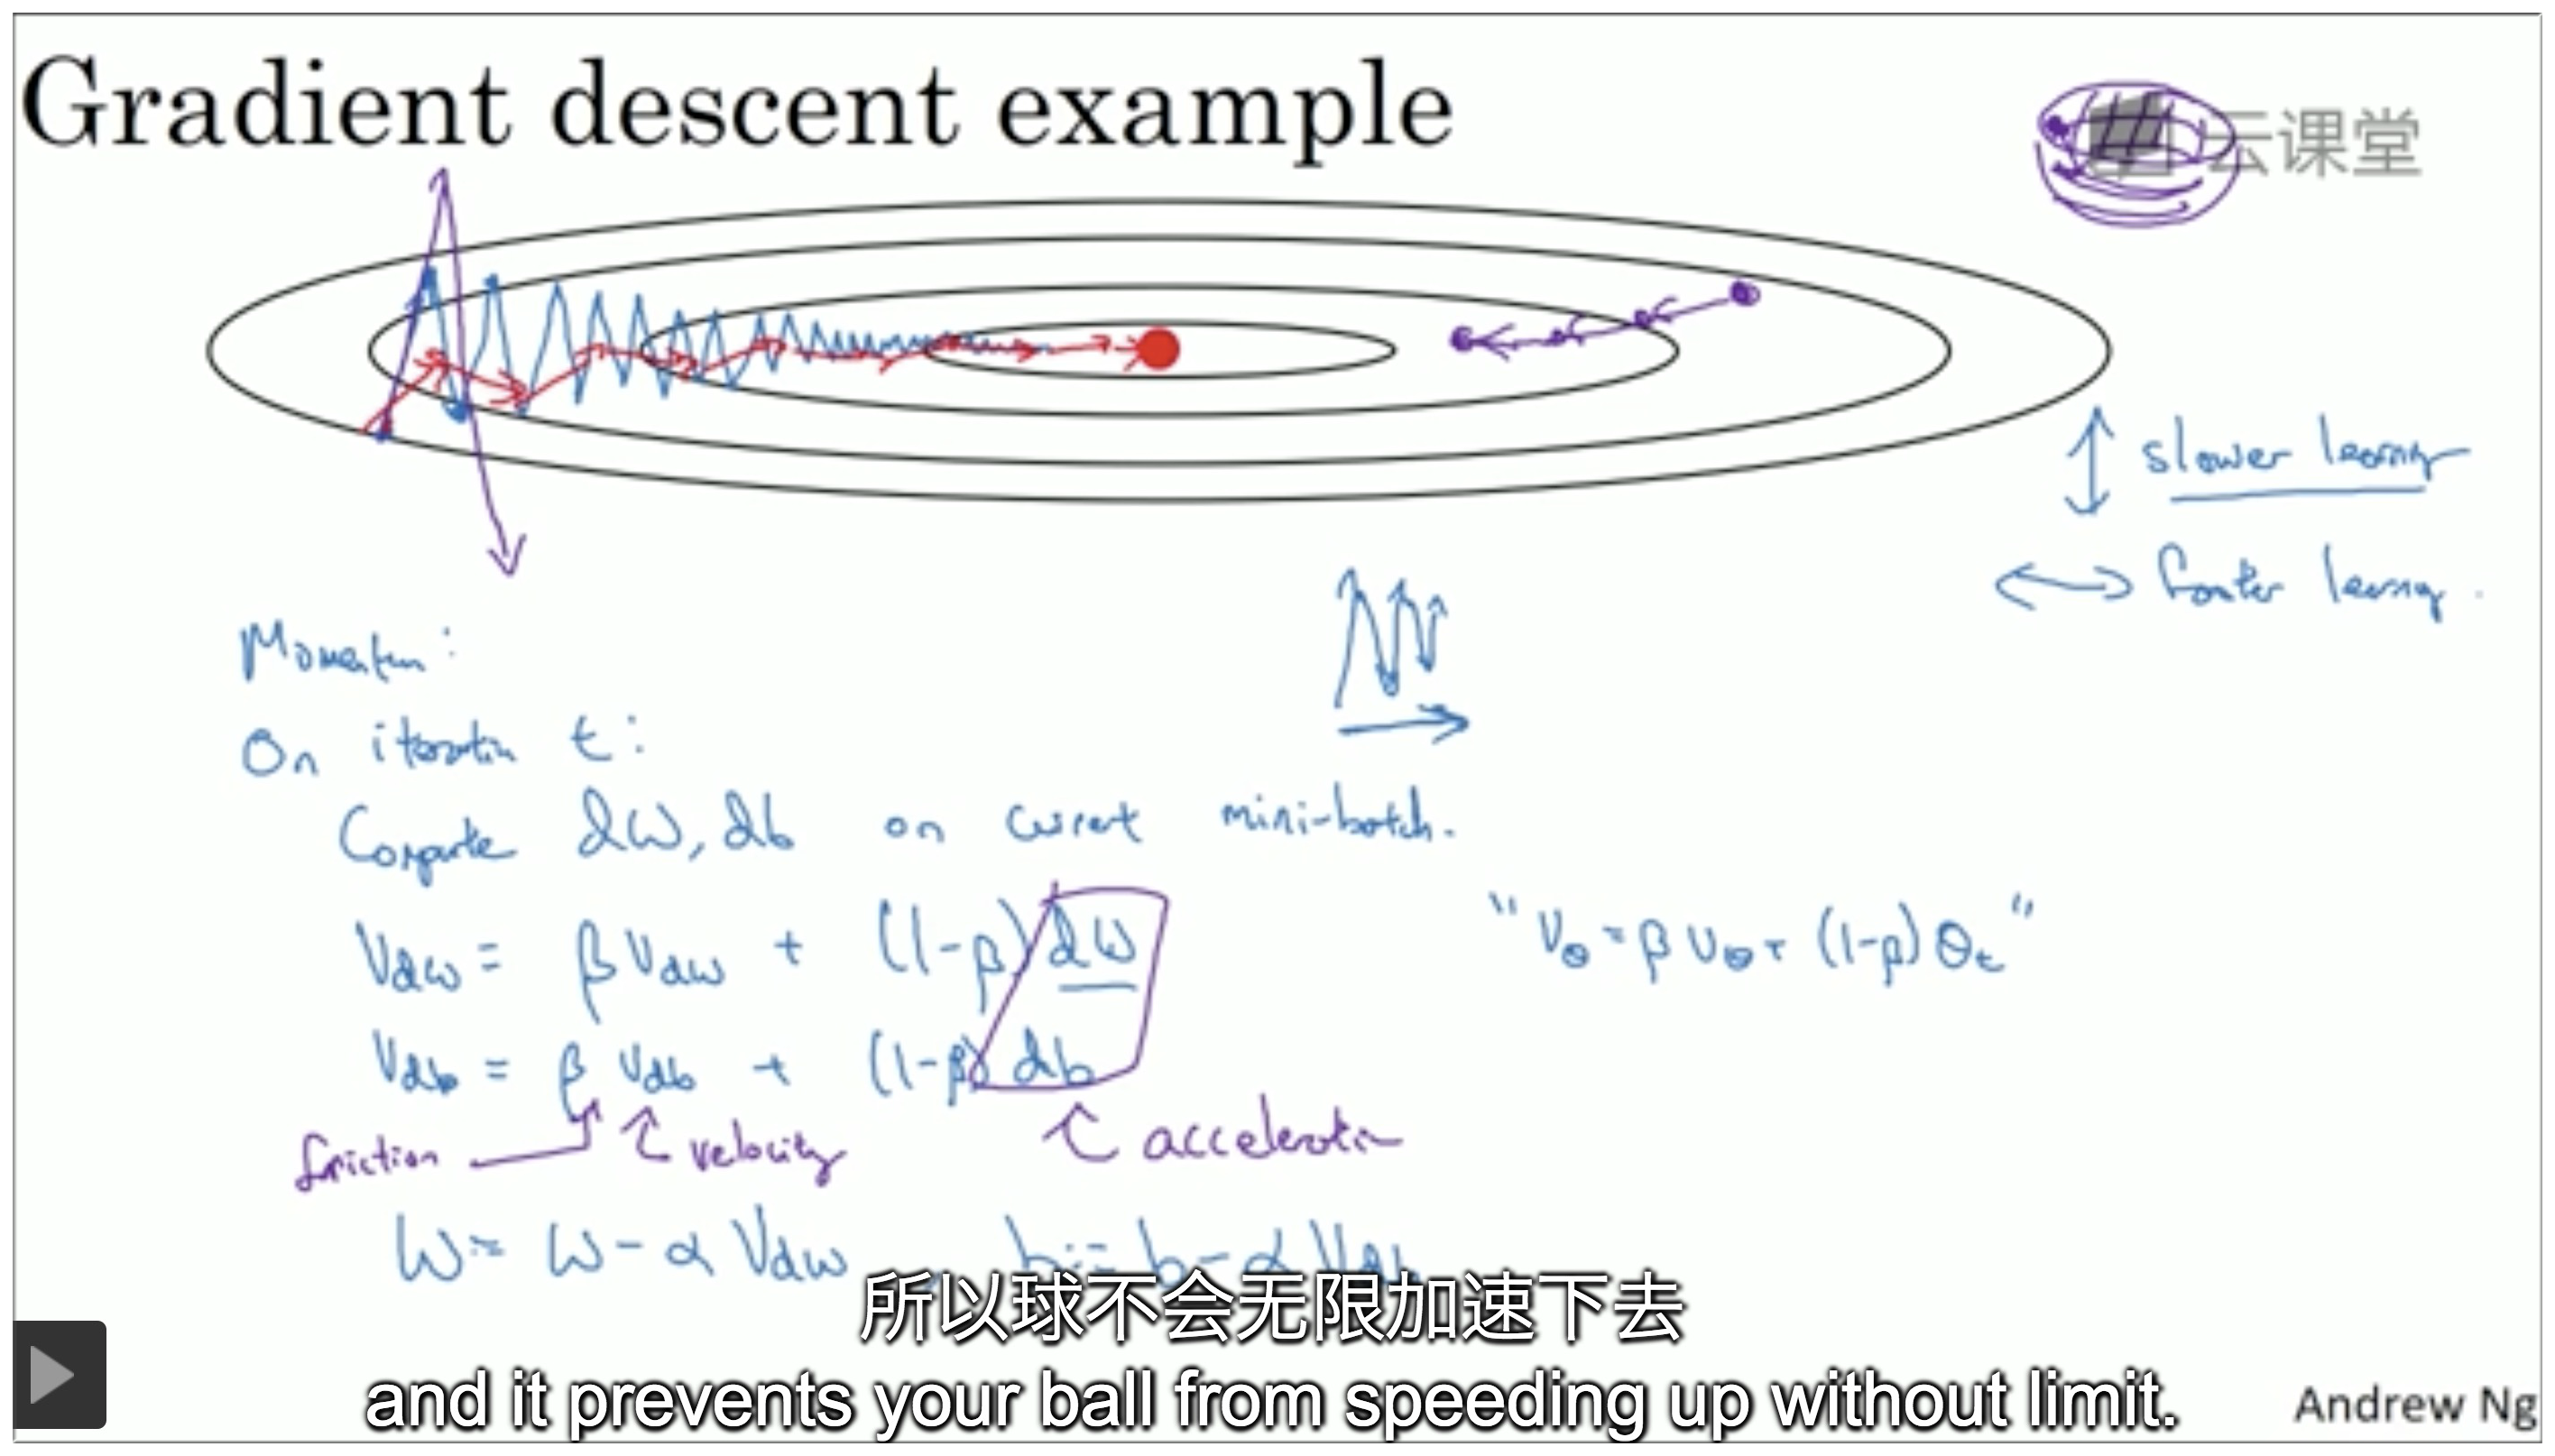 Gradient descent example
云课堂
↕ slower learning
↔ faster learning.
Momentum:
On iteration t:
Compute dW, db on current mini-batch.
Vdw = β Vdw + (1-β) dW
"Vθ = β Vθ + (1-β) θt"
Vdb = β Vdb + (1-β) db
friction velocity acceleration
W = W - α Vdw , b := b - α Vdb
所以球不会无限加速下去
and it prevents your ball from speeding up without limit.
Andrew Ng